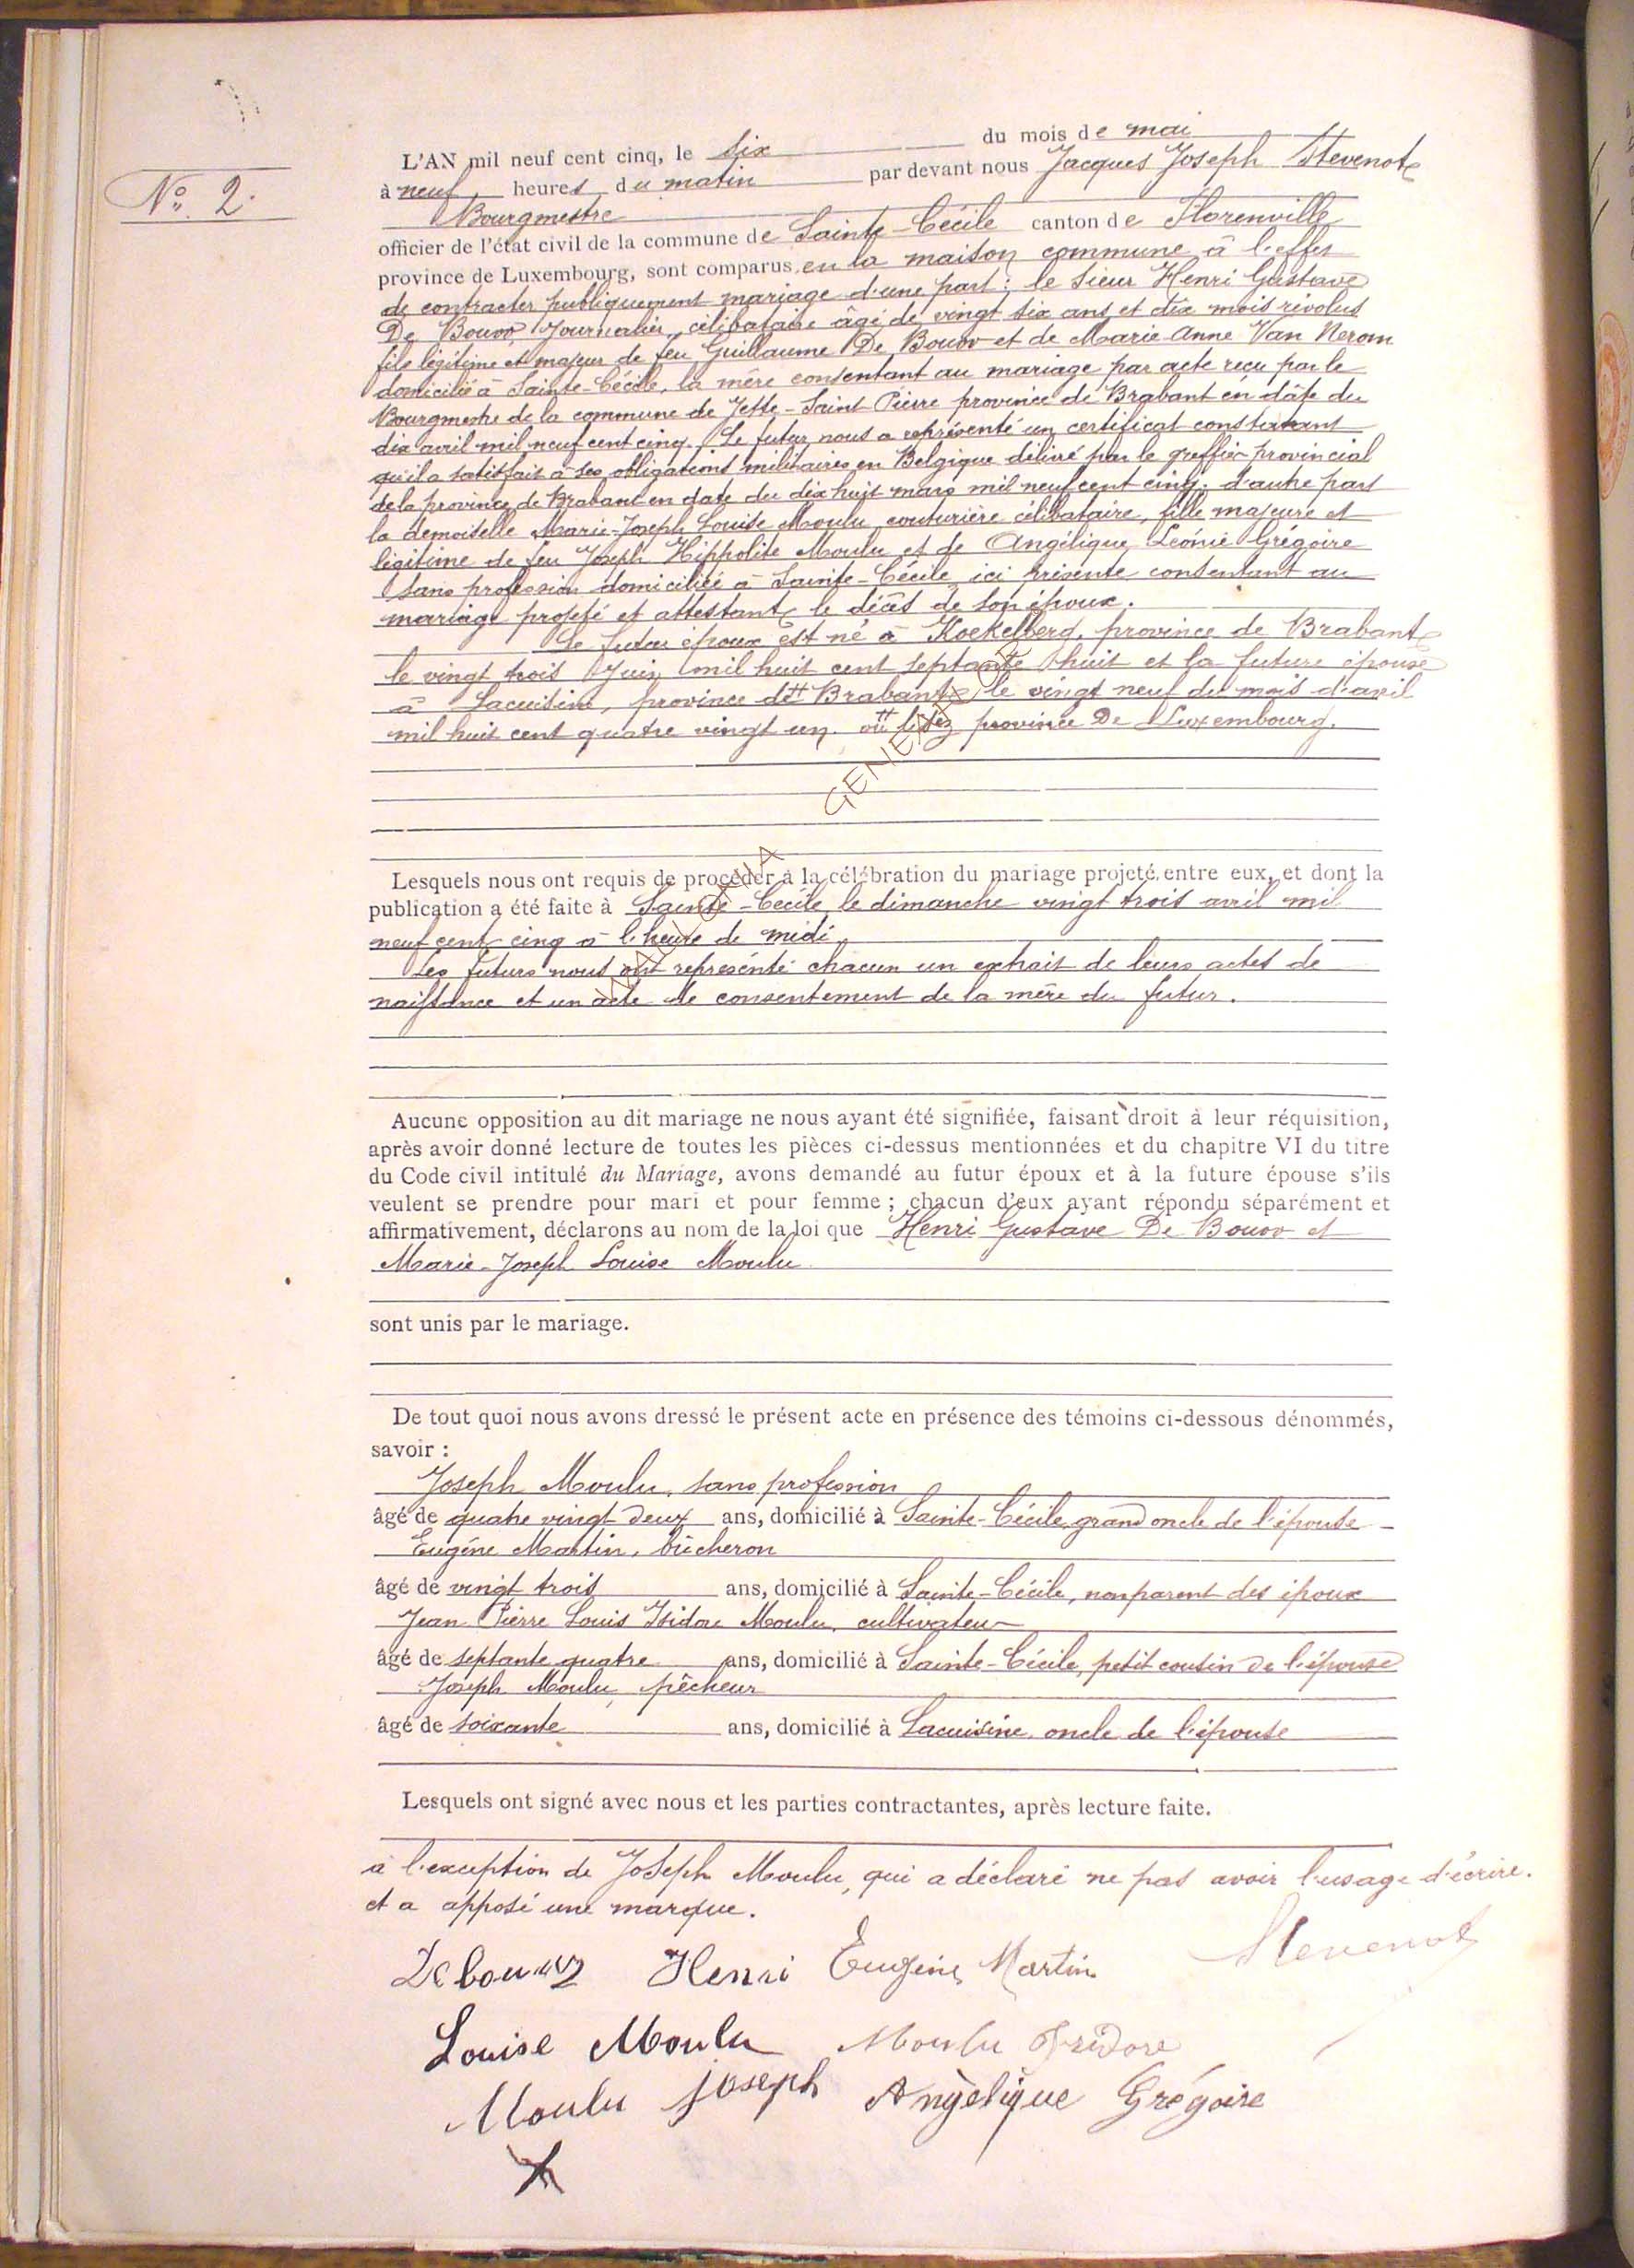 N° 2.
L'AN mil neuf cent cinq, le six du mois de mai
à neuf heures du matin par devant nous Jacques Joseph Stevenot
Bourgmestre
officier de l'état civil de la commune de Sainte-Cécile canton de Florenville
province de Luxembourg, sont comparus en la maison commune à l'effet
de contracter publiquement mariage d'une part : le sieur Henri Gustave
De Bouw, Journalier, célibataire âgé de vingt six ans et dix mois révolus
fils légitime et majeur de feu Guillaume De Bouw et de Marie Anne Van Nerom
domicilié à Sainte-Cécile, la mère consentant au mariage par acte reçu par le
Bourgmestre de la commune de Jette-Saint Pierre province de Brabant en date du
dix avril mil neuf cent cinq. Le futur nous a représenté un certificat constatant
qu'il a satisfait à ses obligations militaires en Belgique délivré par le greffier provincial
de la province de Brabant en date du dix huit mars mil neuf cent cinq. d'autre part
la demoiselle Marie-Joseph Louise Moulu couturière célibataire, fille majeure et
légitime de feu Joseph Hippolite Moulu et de Angélique Léonie Grégoire
sans profession domiciliée à Sainte-Cécile ici présente consentant au
mariage projeté et attestant le décès de son époux.
Le futur époux est né à Koekelberg, province de Brabant
le vingt trois Juin mil huit cent septante huit et la future épouse
à Lacuisine, province de tt Brabant le vingt neuf du mois d'avril
mil huit cent quatre vingt un. tt lisez province De Luxembourg.
Lesquels nous ont requis de procéder à la célébration du mariage projeté entre eux, et dont la
publication a été faite à Sainte-Cécile le dimanche vingt trois avril mil
neuf cent cinq à l'heure de midi
Les futurs nous ont représenté chacun un extrait de leurs actes de
naissance et un acte de consentement de la mère du futur.
Aucune opposition au dit mariage ne nous ayant été signifiée, faisant droit à leur réquisition,
après avoir donné lecture de toutes les pièces ci-dessus mentionnées et du chapitre VI du titre
du Code civil intitulé du Mariage, avons demandé au futur époux et à la future épouse s'ils
veulent se prendre pour mari et pour femme ; chacun d'eux ayant répondu séparément et
affirmativement, déclarons au nom de la loi que Henri Gustave De Bouw et
Marie-Joseph Louise Moulu
sont unis par le mariage.
De tout quoi nous avons dressé le présent acte en présence des témoins ci-dessous dénommés,
savoir :
Joseph Moulu, sans profession
âgé de quatre vingt deux ans, domicilié à Sainte-Cécile, grand oncle de l'épouse
Eugène Martin, bûcheron
âgé de vingt trois ans, domicilié à Sainte-Cécile, non parent des époux
Jean Pierre Louis Isidore Moulu, cultivateur
âgé de septante quatre ans, domicilié à Sainte-Cécile, petit cousin de l'épouse
Joseph Moulu, pêcheur
âgé de soixante ans, domicilié à Lacuisine oncle de l'épouse
Lesquels ont signé avec nous et les parties contractantes, après lecture faite.
à l'exception de Joseph Moulu, qui a déclaré ne pas avoir l'usage d'écrire.
et a apposé une marque.
Henri Eugène Martin Stevenot
Louise Moulu Moulu Isidore
Moulu Joseph Angèlique Grégoire